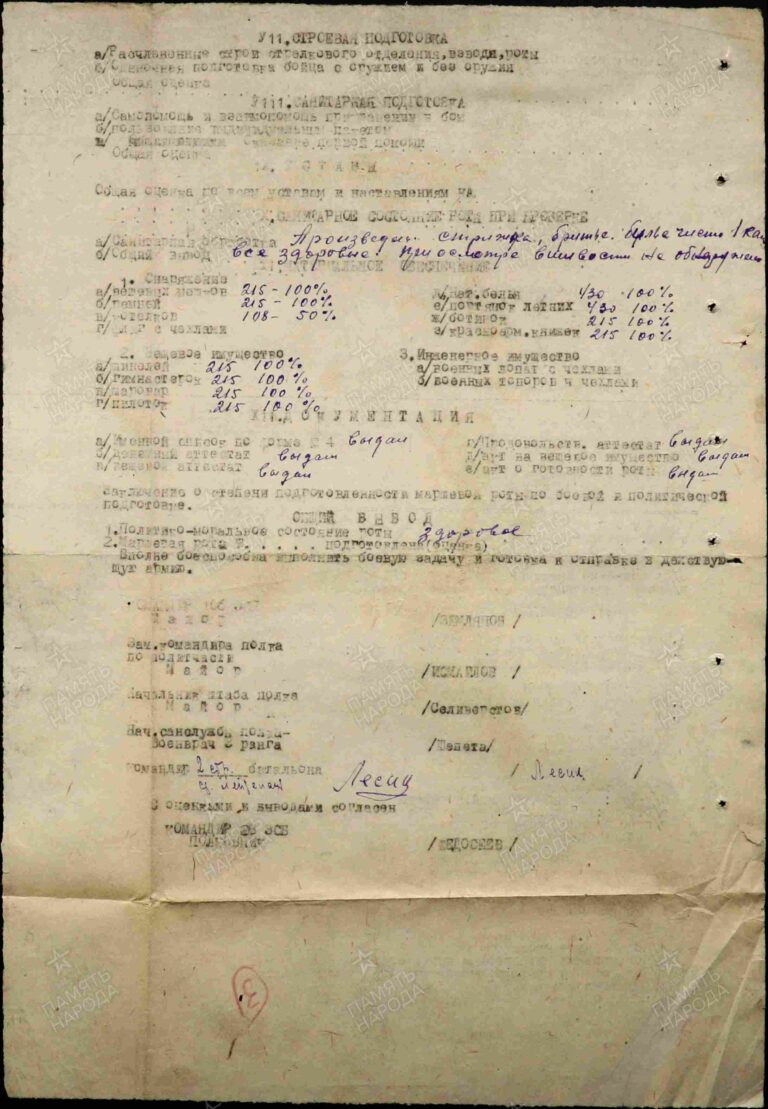 У11.СТРОЕВАЯ ПОДГОТОВКА
а/Расчлененные строи стрелкового отделения,взвода,роты
б/Одиночная подготовка бойца с оружием и без оружия
Общая оценка
У111.САНИТАРНАЯ ПОДГОТОВКА
а/Самопомощь и взаимопомощь при ранении в бою
б/пользование индивидуальным пакетом
в/ первой помощи
Общая оценка
УСТАВЫ
Общая оценка по всем уставам и наставлениям КА
Х.САНИТАРНОЕ СОСТОЯНИЕ РОТЫ ПРИ ПРОВЕРКЕ
а/Санитарная обработка Произведена стрижка, бритье. Белье чисто
б/Общий вывод Все здоровы. При осмотре вшивости не обнаружено
Х1.МАТЕРИАЛЬНОЕ ОБЕСПЕЧЕНИЕ
1. Снаряжение
а/вещевых мешков 215 - 100%
б/ремней 215 - 100%
в/котелков 108 - 50%
г/фляг с чехлами
д/нат.белья 430 100%
е/портянок летних 430 100%
ж/ботинок 215 100%
з/красноарм.книжек 215 100%
2. Вещевое имущество
а/шинелей 215 100%
б/гимнастерок 215 100%
в/шаровар 215 100%
г/пилоток 215 100%
3.Инженерное имущество
а/военных лопат с чехлами
б/военных топоров и чехлами
Х11.ДОКУМЕНТАЦИЯ
а/Именной список по форме № 4 выдан
б/денежный аттестат выдан
в/вещевой аттестат выдан
г/Продовольств. аттестат выдан
д/акт на вещевое имущество выдан
е/акт о готовности роты выдан
Заключение о степени подготовленности маршевой роты по боевой и политической
подготовке.
ОБЩИЙ ВЫВОД
1.Политико-моральное состояние роты здоровое
2.Маршевая рота №. . . . . подготовлена(оценка)
Вполне боеспособна выполнить боевую задачу и готовка к отправке в действую-
щую армию.
КОМАНДИР
Майор /ЗЕМЛЯНОВ /
Зам.командира полка
по политчасти
Майор /ИСМАЕЛОВ /
Начальник штаба полка
Майор /Селиверстов/
Нач.санслужбы полка-
Военврач 3 ранга /Шепета/
Командир 2 стр. батальона
ст. лейтенант Лесик / Лесик /
С оценками и выводами согласен
КОМАНДИР ЗСБ
Полковник /ФЕДОСЕЕВ/
3
ПАМЯТЬ НАРОДА